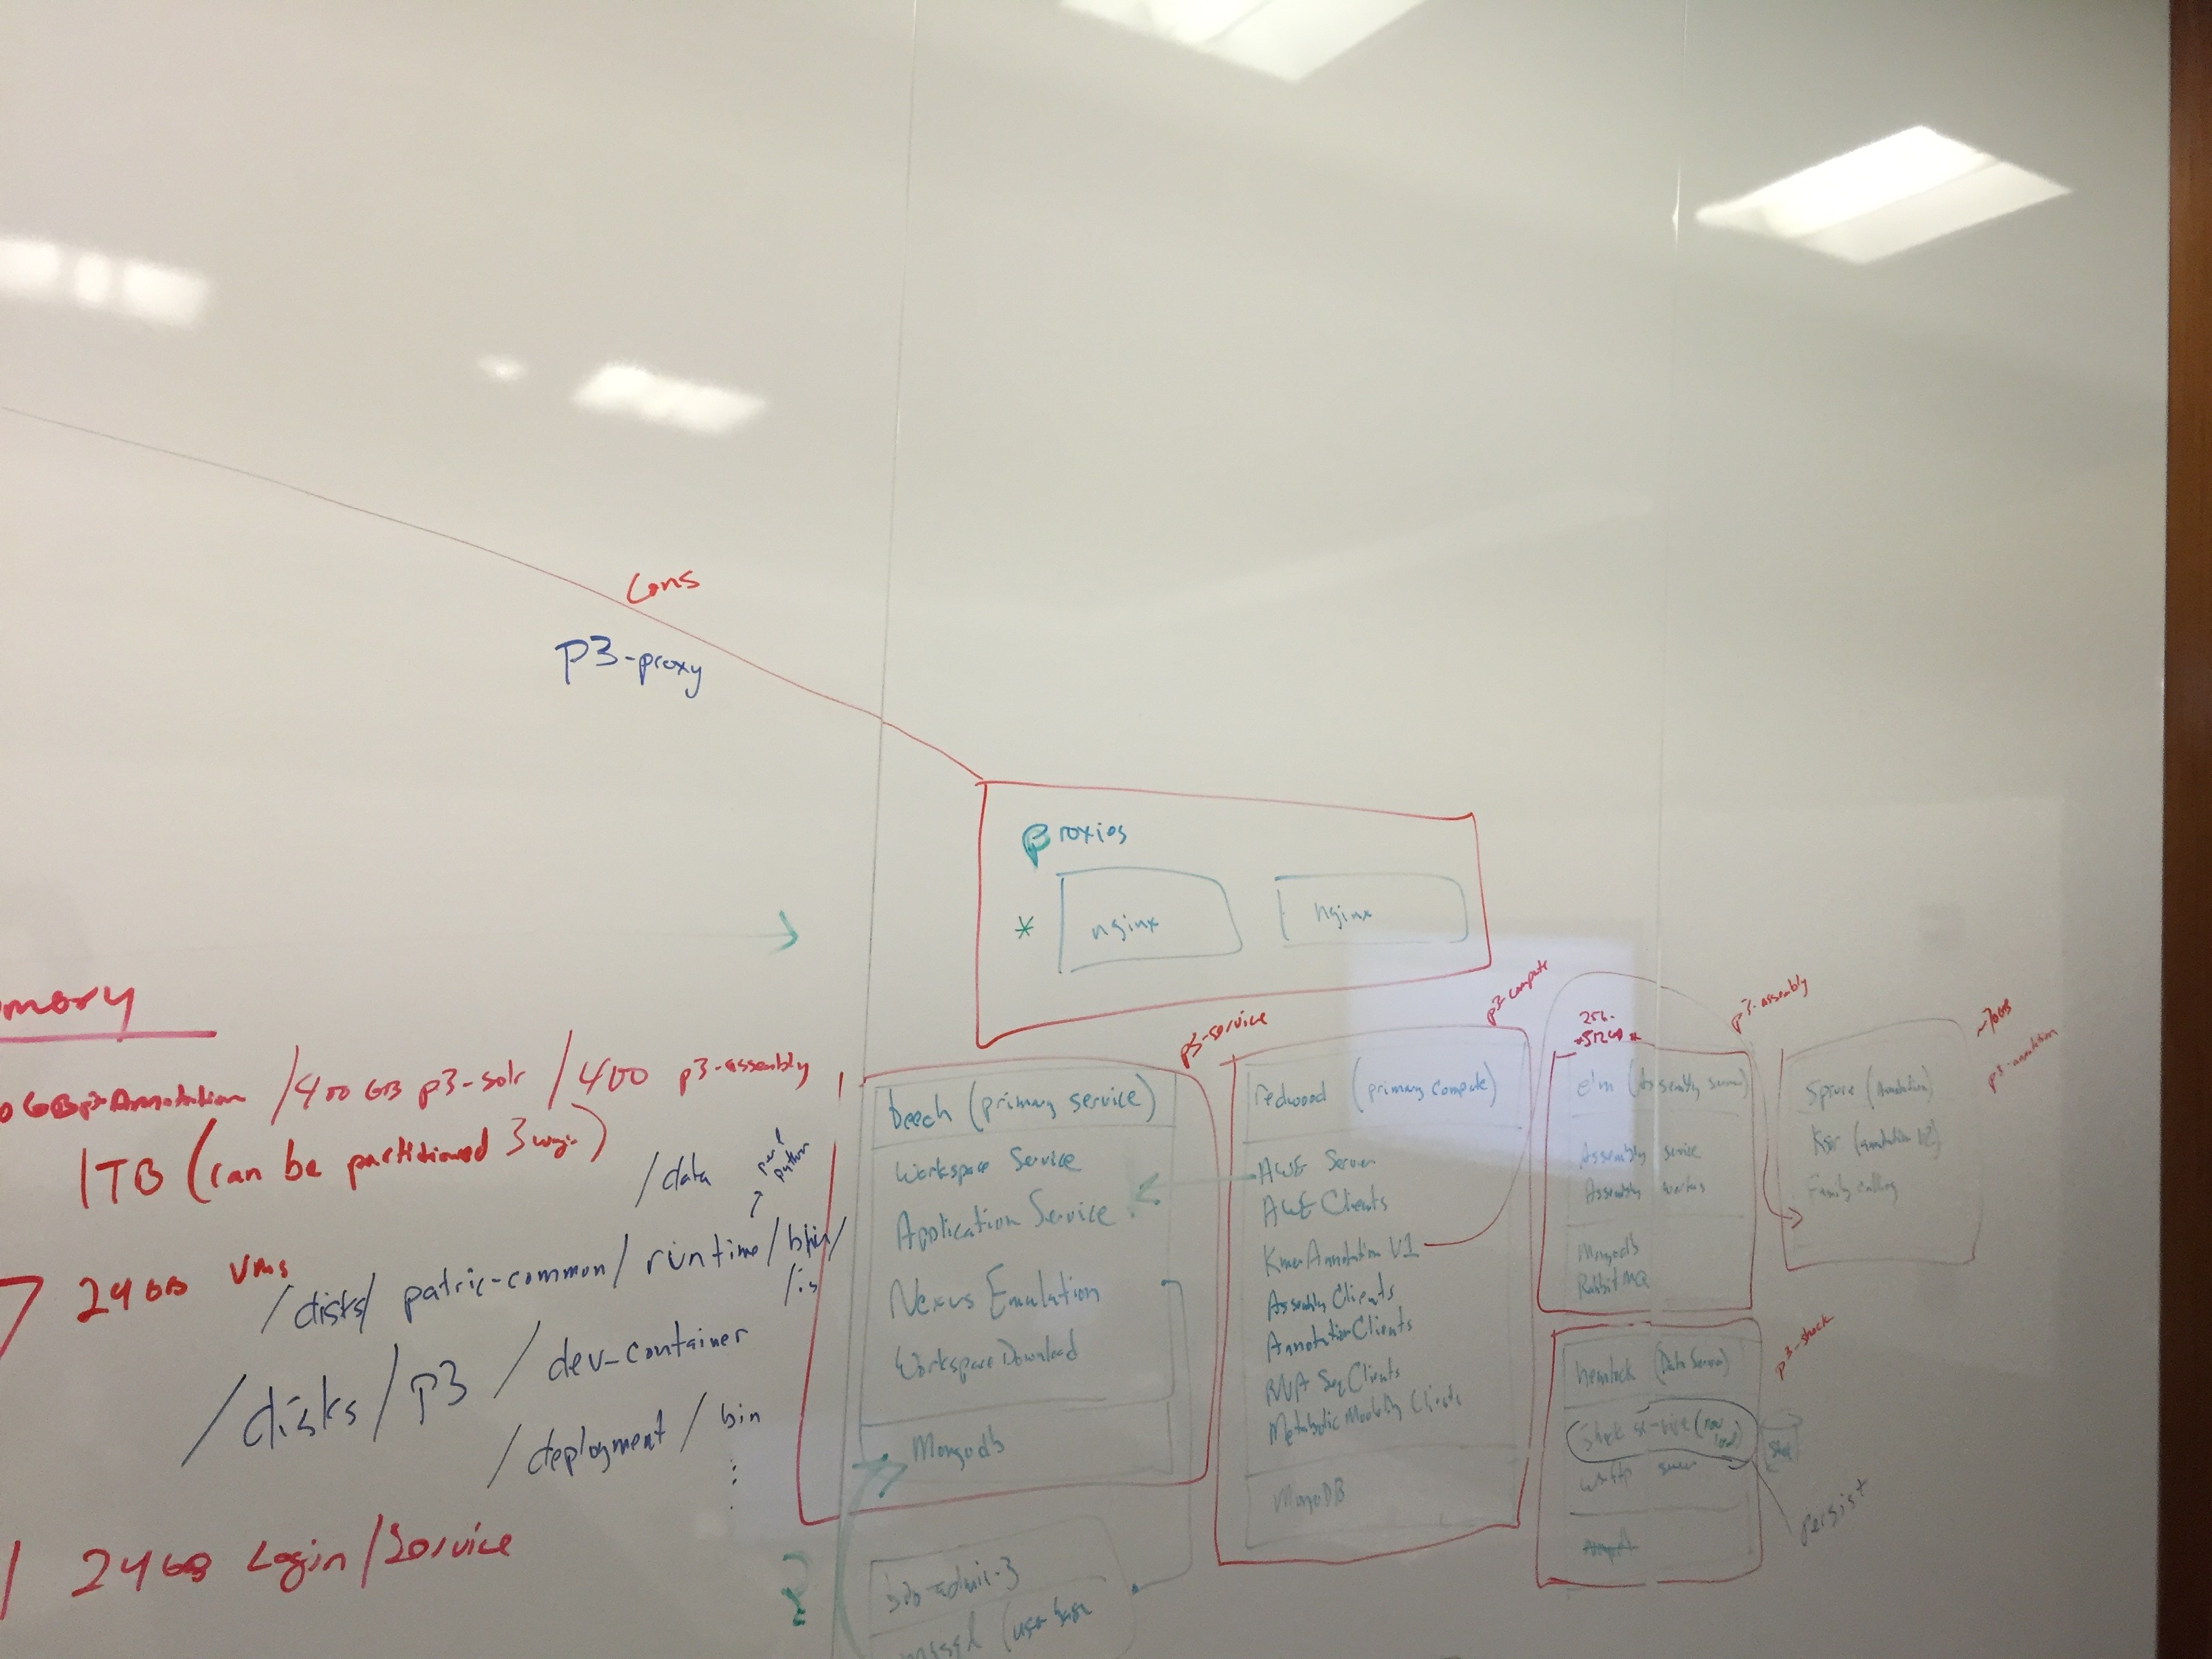 Cons
P3-proxy
proxies
* nginx
nginx
mory
GB p3-Annotation / 400 GB p3-solr / 400 p3-assembly
1TB (can be partitioned 3 ways)
/data
perl
python
24 GB VMs
/disks/ patric-common/ runtime/bin/
/lib
/disks/ p3 / dev-container
/deployment / bin
24 GB Login/Service
p3-service
beech (primary service)
Workspace Service
Application Service
Nexus Emulation
Workspace Download
Mongodb
?
mysql (user base
p3-compute
redwood (primary compute)
AWE Server
AWE Clients
Kmer Annotation V1
Assembly Clients
Annotation Clients
RNA Seq Clients
Metabolic Modeling Clients
MongoDB
p3-assembly
256-
512GB *
elm (Assembly server)
Assembly service
Assembly workers
Mongodb
RabbitMQ
~70GB
p3-annotation
Spruce (Annotation)
Kser (annotation V2)
Family calling
p3-shock
hemlock (Data Server)
Shock service (now
Shock
server
persist